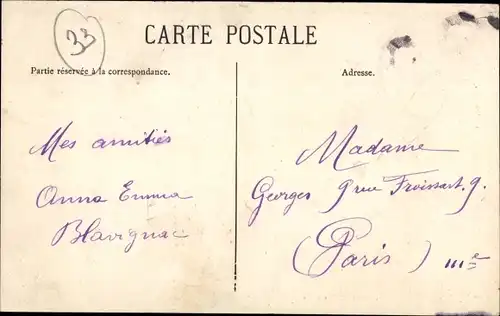 33
CARTE POSTALE
Partie réservée à la correspondance.
Adresse.
Mes amitiés
Anna Emma
Blavignac
Madame
Georges 9 rue Froissart. 9.
(Paris) IIIe